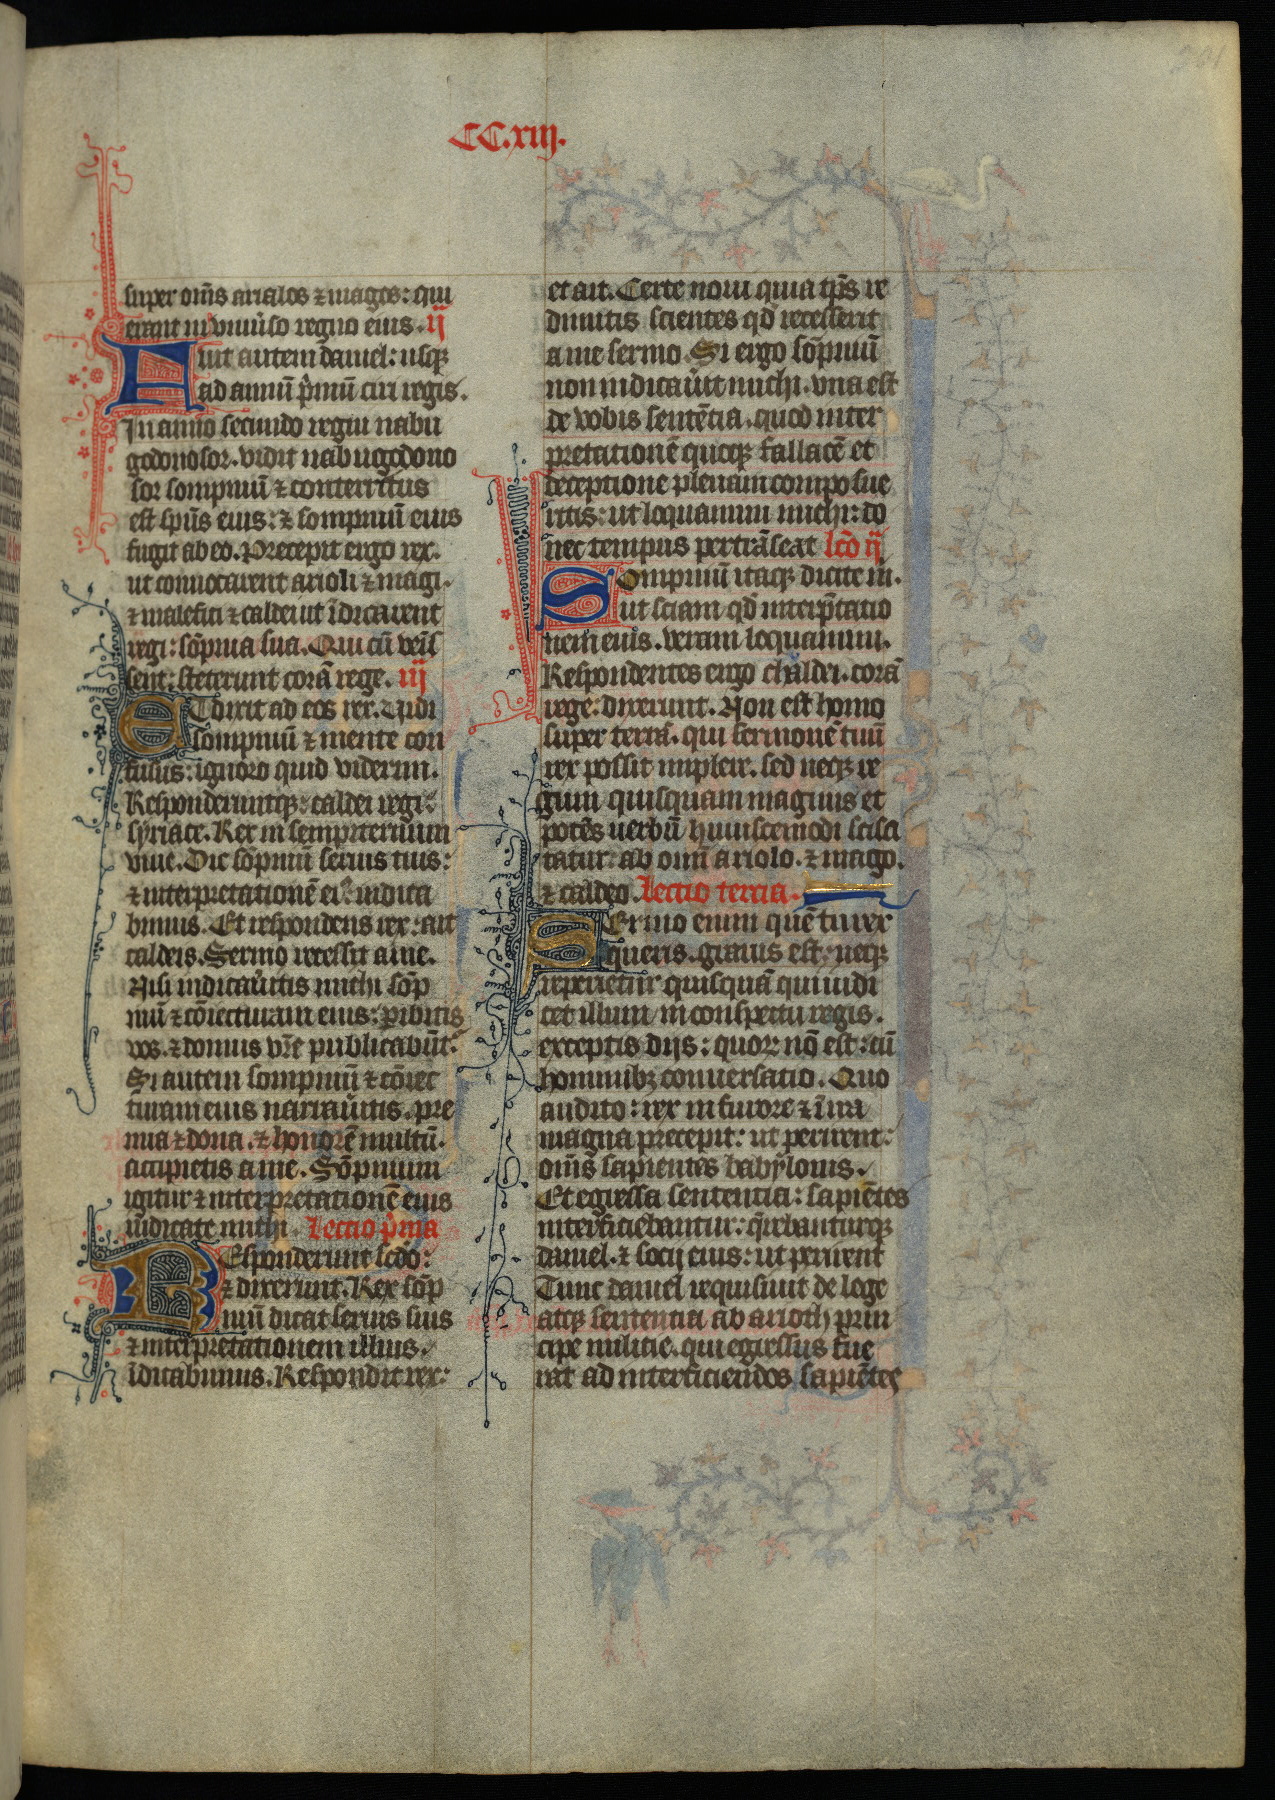 CC.xiij.
super om̄s ariolos ⁊ magos: qui
erant in vniu̾so regno eius. ij
Fuit autem daniel: usq̨
ad annū p̾mū ciri regis.
In anno secundo regni nabu
godonosor. vidit nabugodono
sor sompniū ⁊ conterritus
est sp̄us eius: ⁊ sompniū eius
fugit ab eo. Precepit ergo rex.
ut conuocarent arioli ⁊ magi.
⁊ malefici ⁊ caldei ut īdicarent
regi: sōpnia sua. Qui cū ven̄is
sent: steterunt corā rege. iij
Et dixit ad eos rex. Uidi
sompniū ⁊ mente con
fusus: ignoro quid viderim.
Responderuntq̨: caldei regi:
syriace. Rex in sempiternum
viue. Dic sōpniū seruis tuis:
⁊ interpretationē ei⁹ indica
bimus. Et respondens rex: ait
caldeis. Sermo recessit a me.
Nisi indicau̾itis michi sōp
niū ⁊ cōiecturam eius: p̱ibitis
vos. ⁊ domus vr̄e publicabūt̾.
Si autem sompniū ⁊ cōiec
turam eius narrau̾itis. pre
mia ⁊ dona. ⁊ honorē multū.
accipietis a me. Sōpnium
igitur ⁊ interpretationē eius
īudicate michi. Lectio p̾ma
Responderunt sc̄do:
⁊ dixerunt. Rex sōp
niū dicat seruis suis
⁊ interpretationem illius.
īdicabimus. Respondit rex:
et ait. Certe noui quia tp̄s re
dimitis scientes qd̾ recesserit
a me sermo. Si ergo sōpniū
non indicau̾it michi. vna est
de vobis sentētia. quod inter
pretationē quoq̨ fallacē et
deceptione plenam composue
ritis: ut loquamini michi: do
nec tempus pertrāseat Lc̄o ij
Sompniū itaq̨ dicite m̄.
ut sciam qd̾ interp̄tatio
nem eius. veram loquamini.
Respondentes ergo chaldei. corā
rege: dixerunt. Non est homo
super terrā. qui sermonē tuū
rex possit implere. sed neq̨ re
gum quisquam magnus et
potēs uerbū huiuscemodi scisci
tatur: ab omni ariolo. ⁊ mago.
⁊ caldeo. Lectio tercia.
Sermo enim quē tu rex
queris. grauis est: neq̨
reperietur quisquā qui indi
cet illum in conspectu regis.
exceptis dijs: quoꝝ nō est: cū
hominibꝫ conuersatio. Quo
audito: rex in furore ⁊ ī ira
magna precepit: ut perirent:
om̄s sapientes babylonis.
Et egressa sententia: sapiētes
interficiebantur: q̄rebanturq̨
daniel. ⁊ socij eius: ut perirent
Tunc daniel requisiuit de lege
atq̨ sententia ab arioth prin
cipe militie. qui egressus fue
rat ad interficiendos sapiētes